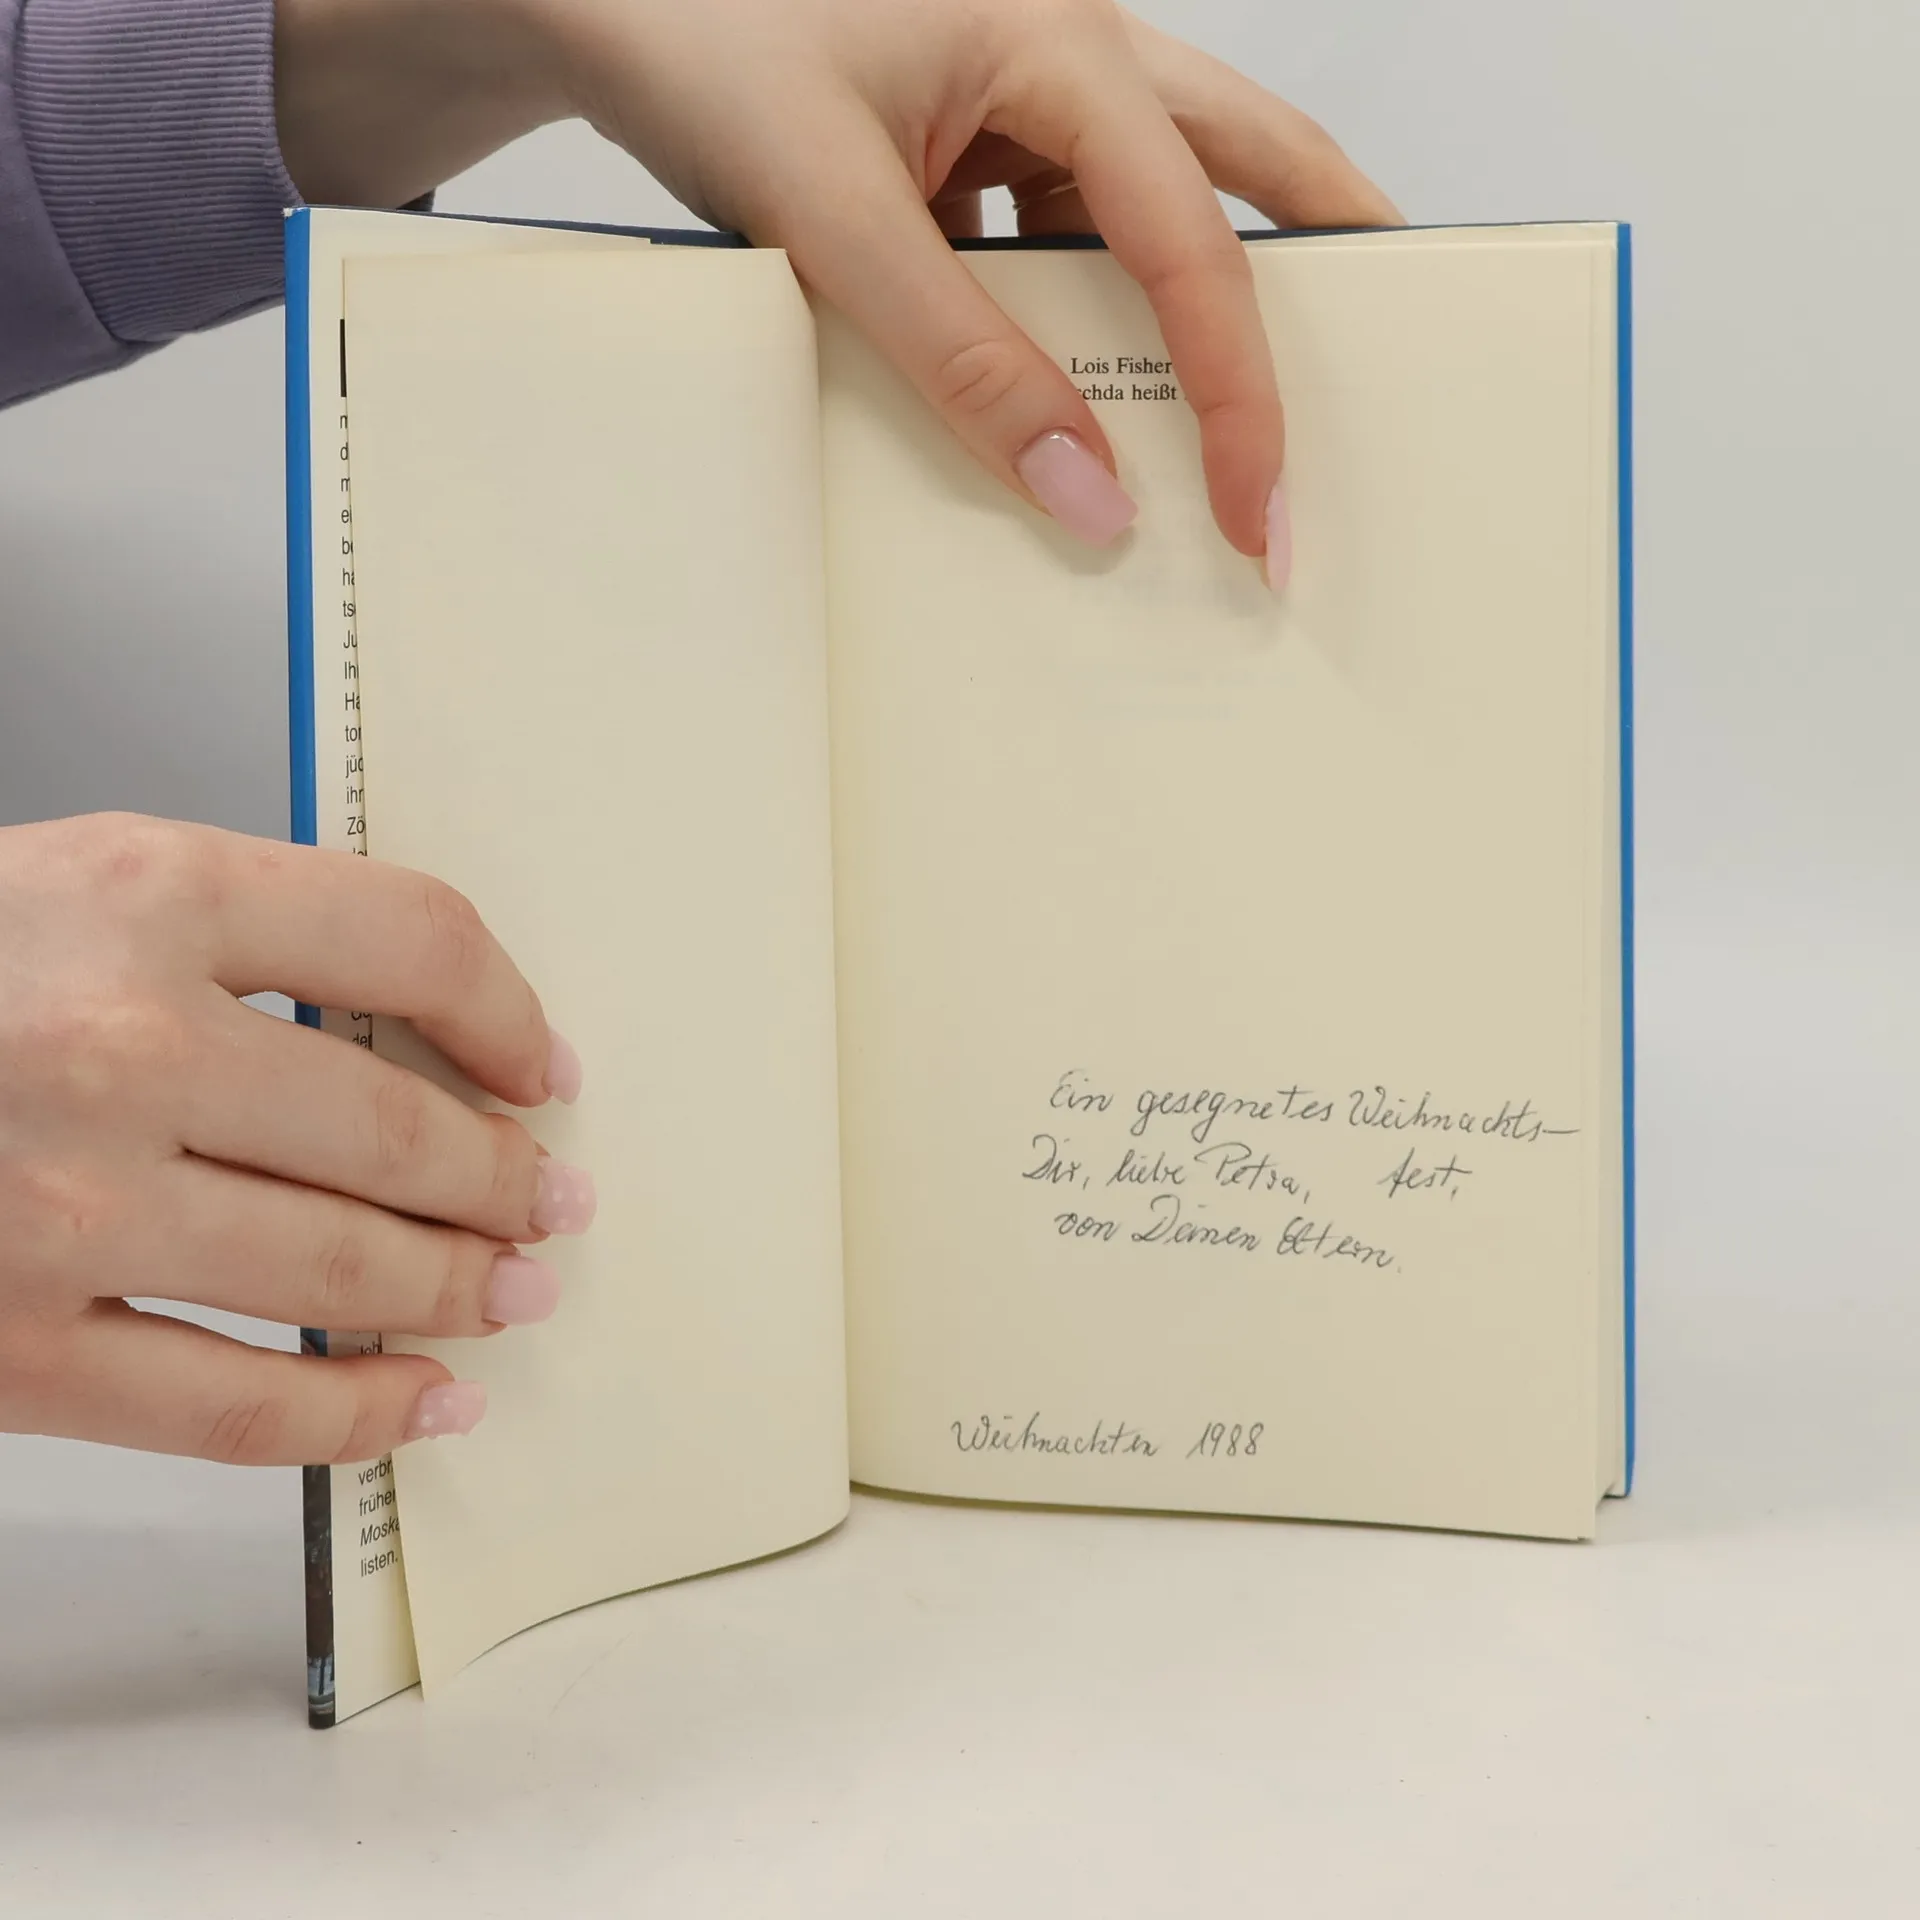 m
d
m
ei
be
ha
ts
Ju
Ih
Ha
tor
jüd
ihr
Zö
der
Joh
verbr
früher
Moska
listen.
Lois Fisher
schda heißt
Ein gesegnetes Weihnachts-
Dir, liebe Petra, fest,
von Deinen Eltern.
Weihnachten 1988